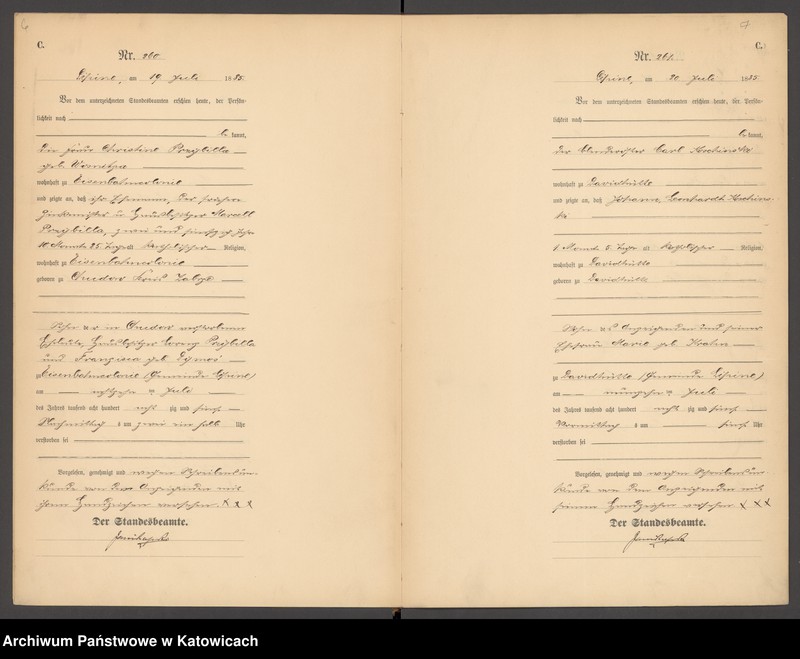 C.
Nr. 260.
am 19 Juli 1885.
Vor dem unterzeichneten Standesbeamten erschien heute, der Persön-
lichkeit nach
be kannt,
die Frau Christine Przybilla
geb.
wohnhaft zu Eisenbahncolonie
und zeigte an, daß ihr Ehemann, der frühere
u Marcell
Przybilla, zwei und fünfzig Jahr
10 Monat 25 Tage alt katholischer Religion,
wohnhaft zu Eisenbahncolonie
geboren zu Kreis
Sohn der in verstorbenen
Eheleute, Lorenz Przybilla
und Francisca geb.
zu Eisenbahncolonie (Gemeinde
am achtzehn ten Juli
des Jahres tausend acht hundert acht zig und fünf
Nachmittag s um zwei ein halb Uhr
verstorben sei
Vorgelesen, genehmigt und wegen Schreibensun-
kunde von der Anzeigenden mit
ihrem Handzeichen versehen. X X X
Der Standesbeamte.
Nr. 261.
C.
am 20. Juli 1885
Vor dem unterzeichneten Standesbeamten erschien heute, der Persön-
lichkeit nach
be kannt,
der Carl
wohnhaft zu Davidhütte
und zeigte an, daß Johann Leonhardt
1 Monat 5 Tage alt katholischer Religion,
wohnhaft zu Davidhütte
geboren zu Davidhütte
Sohn des Anzeigenden und seiner
Ehefrau Marie geb.
zu Davidhütte (Gemeinde
am neunzehn ten Juli
des Jahres tausend acht hundert acht zig und fünf
Vormittag s um fünf Uhr
verstorben sei
Vorgelesen, genehmigt und wegen Schreibensun-
kunde von dem Anzeigenden mit
seinem Handzeichen versehen X X X
Der Standesbeamte.
Archiwum Państwowe w Katowicach